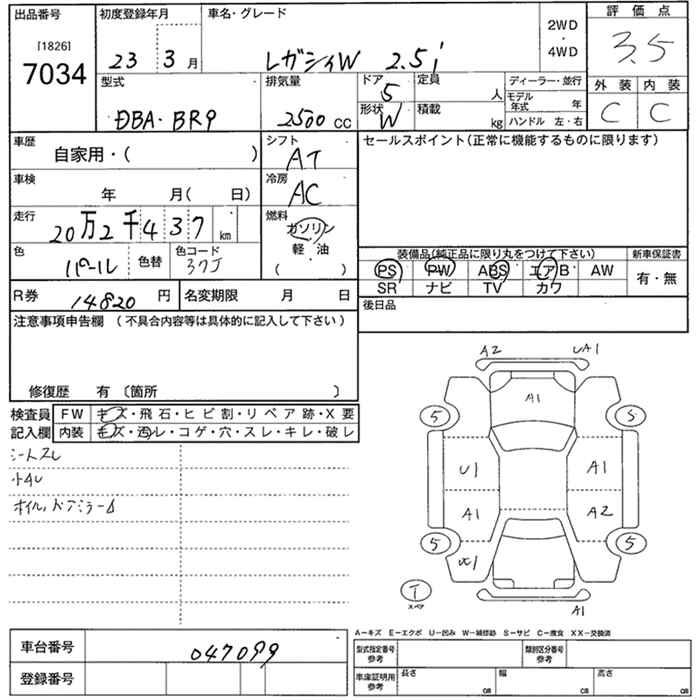 出品番号
[1826]
7034
初度登録年月
23 3 月
車名・グレード
レガシィW 2.5i
2WD
・
4WD
評価点
3.5
外装 内装
C C
型式
DBA・BR9
排気量
2500 CC
ドア
5
形状
W
定員
人
積載
kg
ディーラー・並行
モデル年式 年
ハンドル 左・右
車歴
自家用・( )
シフト
AT
セールスポイント(正常に機能するものに限ります)
車検
年 月( 日)
冷房
AC
走行
20万2千437 km
燃料
ガソリン
軽・油
( ・ )
色
パール
色替
色コード
37J
装備品(純正品に限り丸をつけて下さい)
新車保証書
PS PW ABS エアB AW
SR ナビ TV カワ
有・無
R券 14820 円
名変期限 月 日
後日品
注意事項申告欄 (不具合内容等は具体的に記入して下さい)
修復歴 有 〔箇所 〕
検査員
記入欄
FW キズ・飛石・ヒビ割・リペア跡・X要
内装 キズ・汚レ・コゲ・穴・スレ・キレ・破レ
シートスレ
オイル
A2 UA1
A1
5 S
U1 A1
A1 A2
5 5
T
スペア
A1
A-キズ E-エクボ U-凹み W-補修跡 S-サビ C-腐食 XX-交換済
車台番号 047099
登録番号
型式指定番号
参考
類別区分番号
参考
車庫証明用
参考
長さ cm
幅 cm
高さ cm